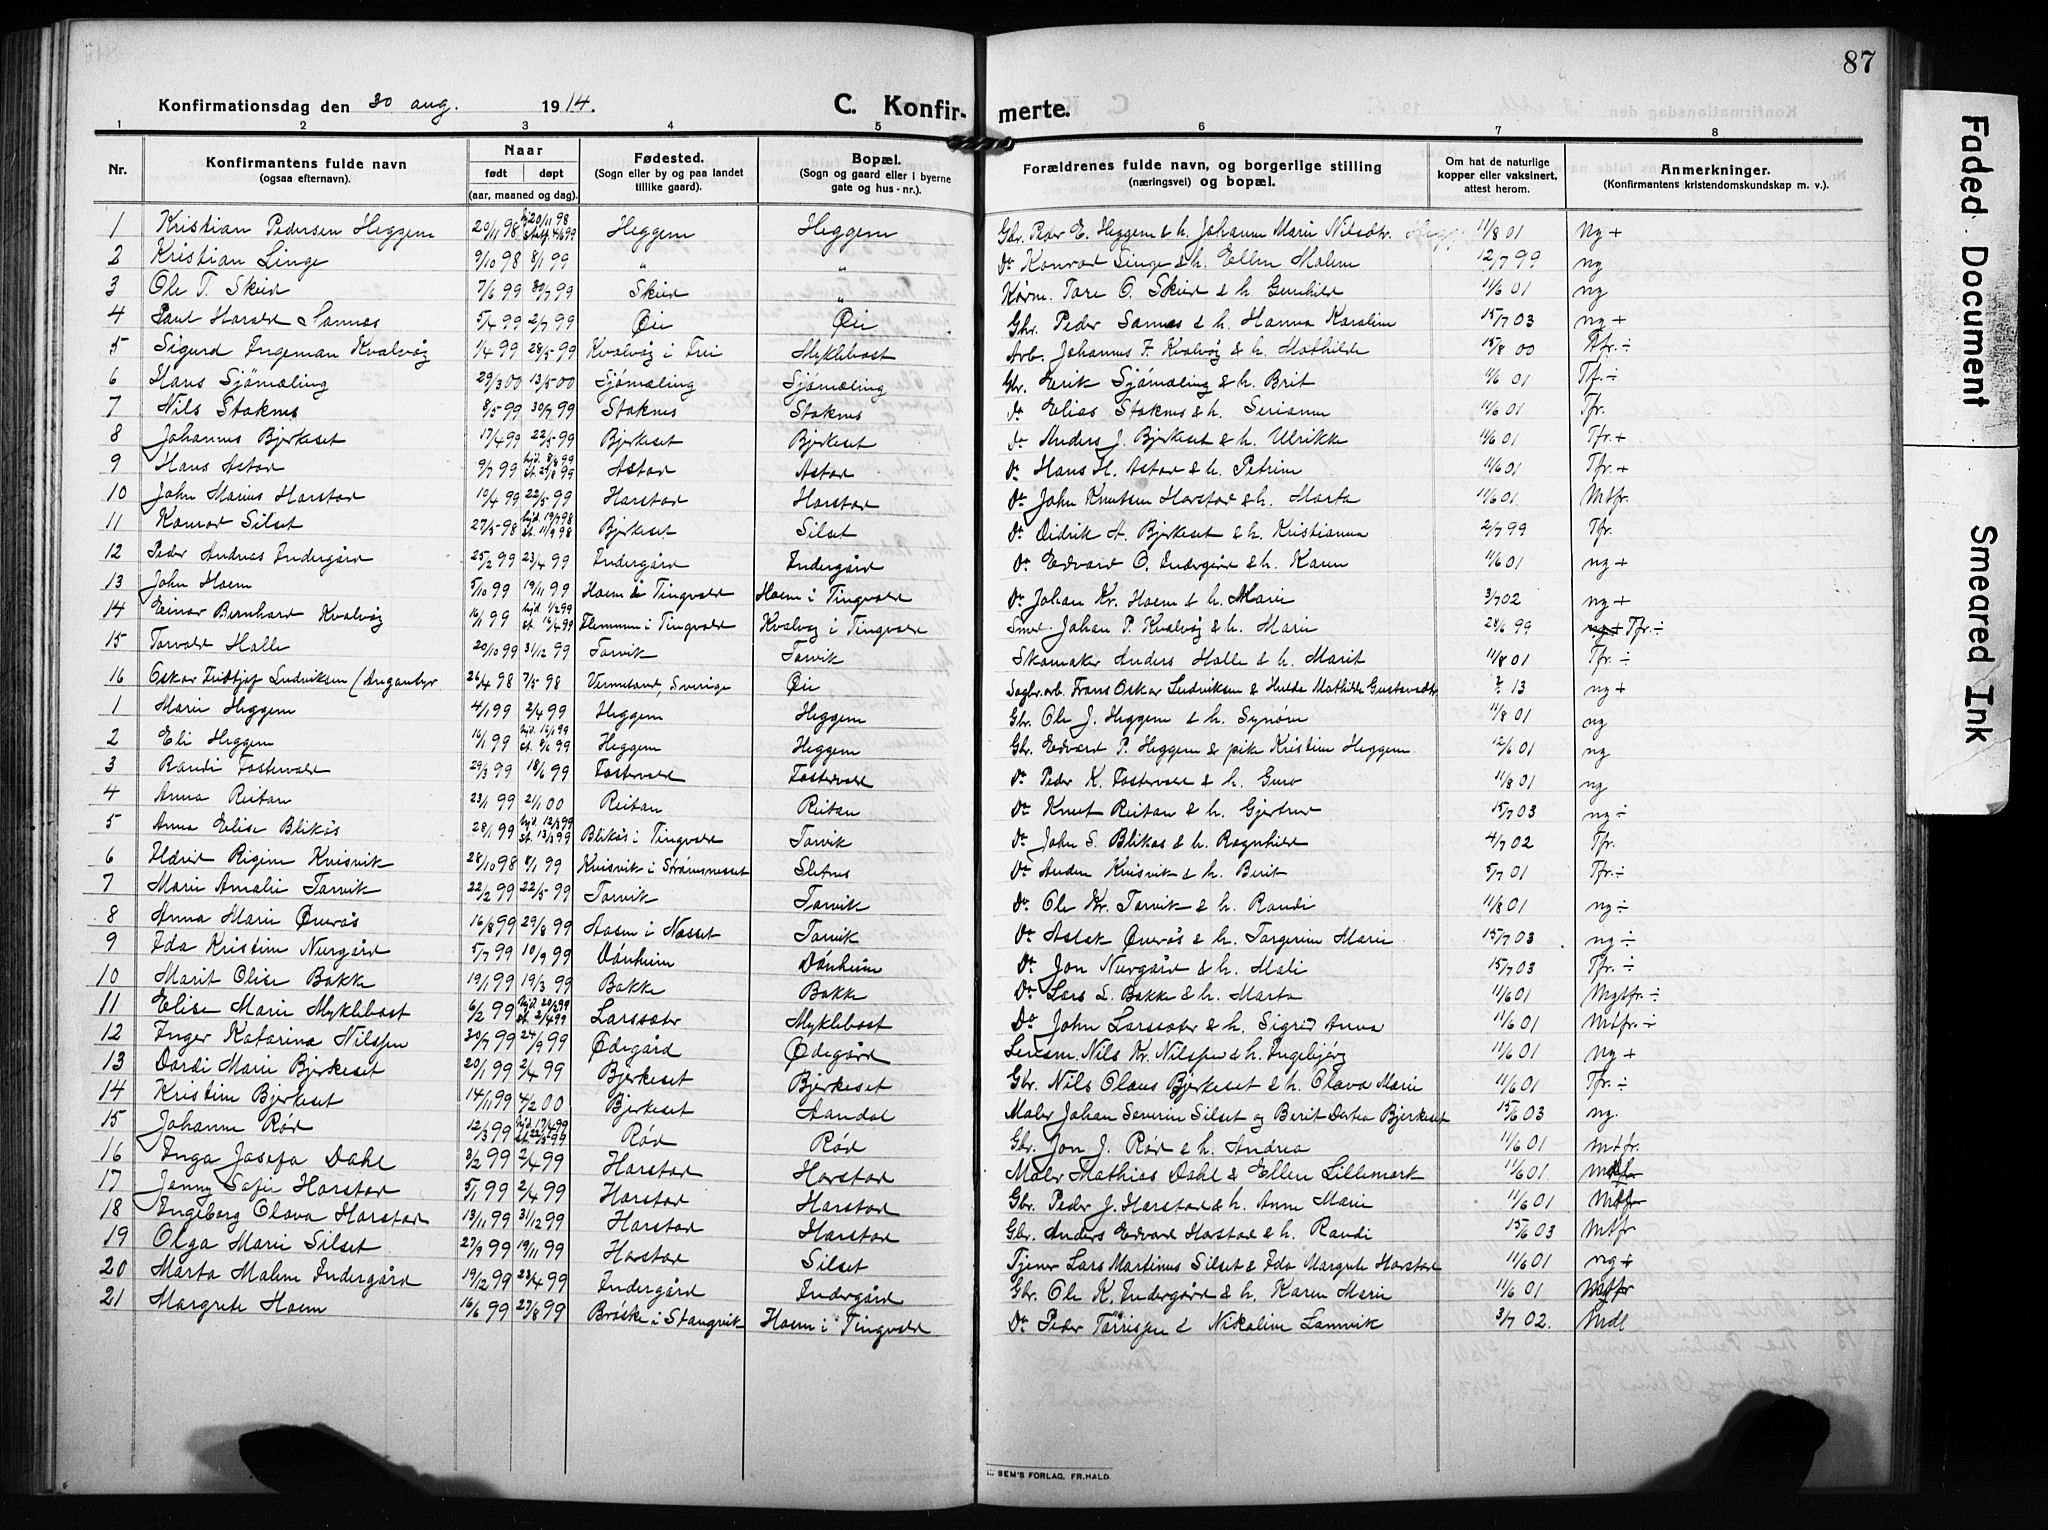 87
Konfirmationsdag den 30 aug. 1914. C. Konfir- merte.
1 2 3 4 5 6 7 8
Nr. Konfirmantens fulde navn (ogsaa efternavn). Naar født døpt (aar, maaned og dag). Fødested. (Sogn eller by og paa landet tillike gaard). Bopæl. (Sogn og gaard eller i byerne gate og hus-nr.). Forældrenes fulde navn, og borgerlige stilling (næringsvei) og bopæl. Om hat de naturlige kopper eller vaksinert, attest herom. Anmerkninger. (Konfirmantens kristendomskundskap m. v.).
1 Kristian Pedersen Heggem 20/11 98 hjd. 20/11 98 4/6 99 Heggem Heggem Gbr. Peder E. Heggem & h. Johanne Marie Nilsdtr. 11/8 01 Ng +
2 Kristian Linge 9/10 98 8/1 99 " " Do Konrad Linge & h. Ellen Malene 12/7 99 ng
3 Ole T. Skeid 7/6 99 30/7 99 Skeid " Tore O. Skeid & h. Gunhild 11/6 01 ng
4 Paul Harald Sannes 5/4 99 2/7 99 Øie Øie Gbr. Peder Sannes & h. Hanna Karoline 15/7 03 ng +
5 Sigurd Ingeman Kvalvåg 1/4 99 28/5 99 Kvalvåg i Frei Myklebost Arb. Johannes F. Kvalvåg & h. Mathilde 15/8 00 Tfr. ÷
6 Hans Sjømæling 29/3 00 13/5 00 Sjømæling Sjømæling Gbr. Erik Sjømæling & h. Brit 11/6 01 Tf. ÷
7 Nils Stoknes 8/5 99 30/7 99 Stoknes Stoknes Do Elias Stoknes & h. Serianne 11/6 01 Tfr.
8 Johannes Bjerkeset 17/4 99 22/5 99 Bjerkeset Bjerkeset Do Anders J. Bjerkeset & h. Ulrikke 11/6 01 Tfr. +
9 Hans Astad 9/7 99 hjd. 8/8 99 st. 27/8 99 Astad Astad Do Hans H. Astad & h. Petrine 11/6 01 Tfr. +
10 John Marius Harstad 10/4 99 22/5 99 Harstad Harstad Do John Knutsen Harstad & h. Marta 11/6 01. Mtfr.
11 Konrad Silset 27/5 98 hjd. 19/7 98 st. 11/9 98 Bjerkeset Silset Do Didrik A. Bjerkeset & h. Kristianna 2/7 99 Tfr.
12 Peder Andreas Indergård 25/2 99 23/4 99 Indergård Indergård Do Edvard O. Indergård & h. Karen 11/6 01 ng +
13 John Hoem 5/10 99 19/11 99 Hoem i Tingvold Hoem i Tingvold Do Johan Kr. Hoem & h. Marie 3/7 02 ng +
14 Einar Bernhard Kvalvåg 16/1 99 hjd. 1/2 99 st. 16/4 99 Flemmen i Tingvold Kvalvåg i Tingvold Smed Johan P. Kvalvåg & h. Marie 28/6 99 ng + Tfr. ÷
15 Torvald Halle 20/10 99 31/12 99 Torvik Torvik Skomaker Anders Halle & h. Marit 11/8 01 Tfr. ÷
16 Oskar Fridtjof Ludviksen (Angantyr 26/4 98 7/5 98 Vermeland Sverige Øie Sagbr.arb. Frans Oskar Ludviksen & Hulda Mathilde Gustavsdtr. ? 13 ng +
1 Marie Heggem 4/1 99 2/4 99 Heggem Heggem Gbr. Ole J. Heggem & h. Synøve 11/8 01 ng
2 Eli Heggem 16/1 99 hjd. 16/1 99 st. 8/6 99 Heggem Heggem Gbr. Edvard P. Heggem & pike Kristine Heggem 12/6 01 ng
3 Randi Fostervold 29/3 99 18/6 99 Fostervold Fostervold Do Peder K. Fostervold & h. Guro 11/8 01 ng
4 Anna Reitan 23/1 99 2/1 00 Reitan Reitan Do Knut Reitan & h. Gjertrud 15/7 03 ng ÷
5 Anna Elise Blikås 28/1 99 hjd. 12/3 99 Blikås i Tingvold Torvik Do John S. Blikås & h. Ragnhild 4/7 02 Tfr.
6 Hdrid Regine Kvisvik 28/10 98 8/1 99 Kvisvik i Strømsneset Sletnes Do Anden Kvisvik & h. Berit 5/7 01 Tfr. ÷
7 Marie Amalie Torvik 22/2 99 22/5 99 Torvik Torvik Do Ole Kr. Torvik & h. Randi 11/8 01 ng ÷
8 Anna Marie Øverås 16/8 99 29/8 99 Aasen i Nesset Torvik Do Aslak Øverås & h. Torgerine Marie 15/7 03 ng ÷
9 Ida Kristine Nergård 5/7 99 10/9 99 Vånheim Vånheim Do Jon Nergård & h. Mali 15/7 03 Tfr. ÷
10 Marit Olise Bakke 19/1 99 19/3 99 Bakke Bakke Do Lars L. Bakke & h. Marta 11/6 01 Mgtfr. ÷
11 Elise Marie Myklebost 6/2 99 hjd. 20/2 99 st. 2/4 99 Larssæter Myklebost Do John Larssæter & h. Sigrid Anna 11/6 01 Mtfr. ÷
12 Inger Katarina Nilssen 30/7 99 24/9 99 Ødegård Ødegård Lensm. Nils Kr. Nilssen & h. Ingebjørg 11/6 01 ng +
13 Dordi Marie Bjerkeset 20/1 99 2/4 99 Bjerkeset Bjerkeset Gbr. Nils Olaus Bjerkeset & h. Olava Marie 11/6 01 Tfr. ÷
14 Kristine Bjerkeset 14/11 99 4/2 00 Bjerkeset Aandal Maler Johan Severin Silset og Berit Dortea Bjerkeset 15/6 03 ng.
15 Johanne Rød 12/3 99 hjd. 17/4 99 st. 22/5 99 Rød Rød Gbr. Jon J. Rød & h. Andrea 11/6 01 Mtfr.
16 Inga Josefa Dahl 3/2 99 2/4 99 Harstad Harstad Maler Mathias Dahl & Ellen Lillemork 11/6 01
17 Jenny Sofie Harstad 5/1 99 2/4 99 Harstad Harstad Gbr. Peder J. Harstad & h. Anne Marie 11/6 01 Mtfr
18 Ingeborg Olava Harstad 13/11 99 31/12 99 Harstad Harstad Gbr. Anders Edvard Harstad & h. Randi 15/6 03 Mtfr
19 Olga Marie Silset 27/9 99 19/11 99 Harstad Silset Tjener Lars Martinus Silset & Ida Margrete Harstad 11/6 01 ng +
20 Marta Malene Indergård 19/12 99 23/4 99 Indergård Indergård Gbr. Ole K. Indergård & h. Karen Marie 11/6 01
21 Margrete Hoem 16/6 99 27/8 99 Brøske i Stangvik Hoem i Tingvold Do Peder Torrissen & Nikoline Lamvik 3/7 02. Mdl
SEM'S FORLAG, FR.HALD.
Faded Document
Smeared Ink